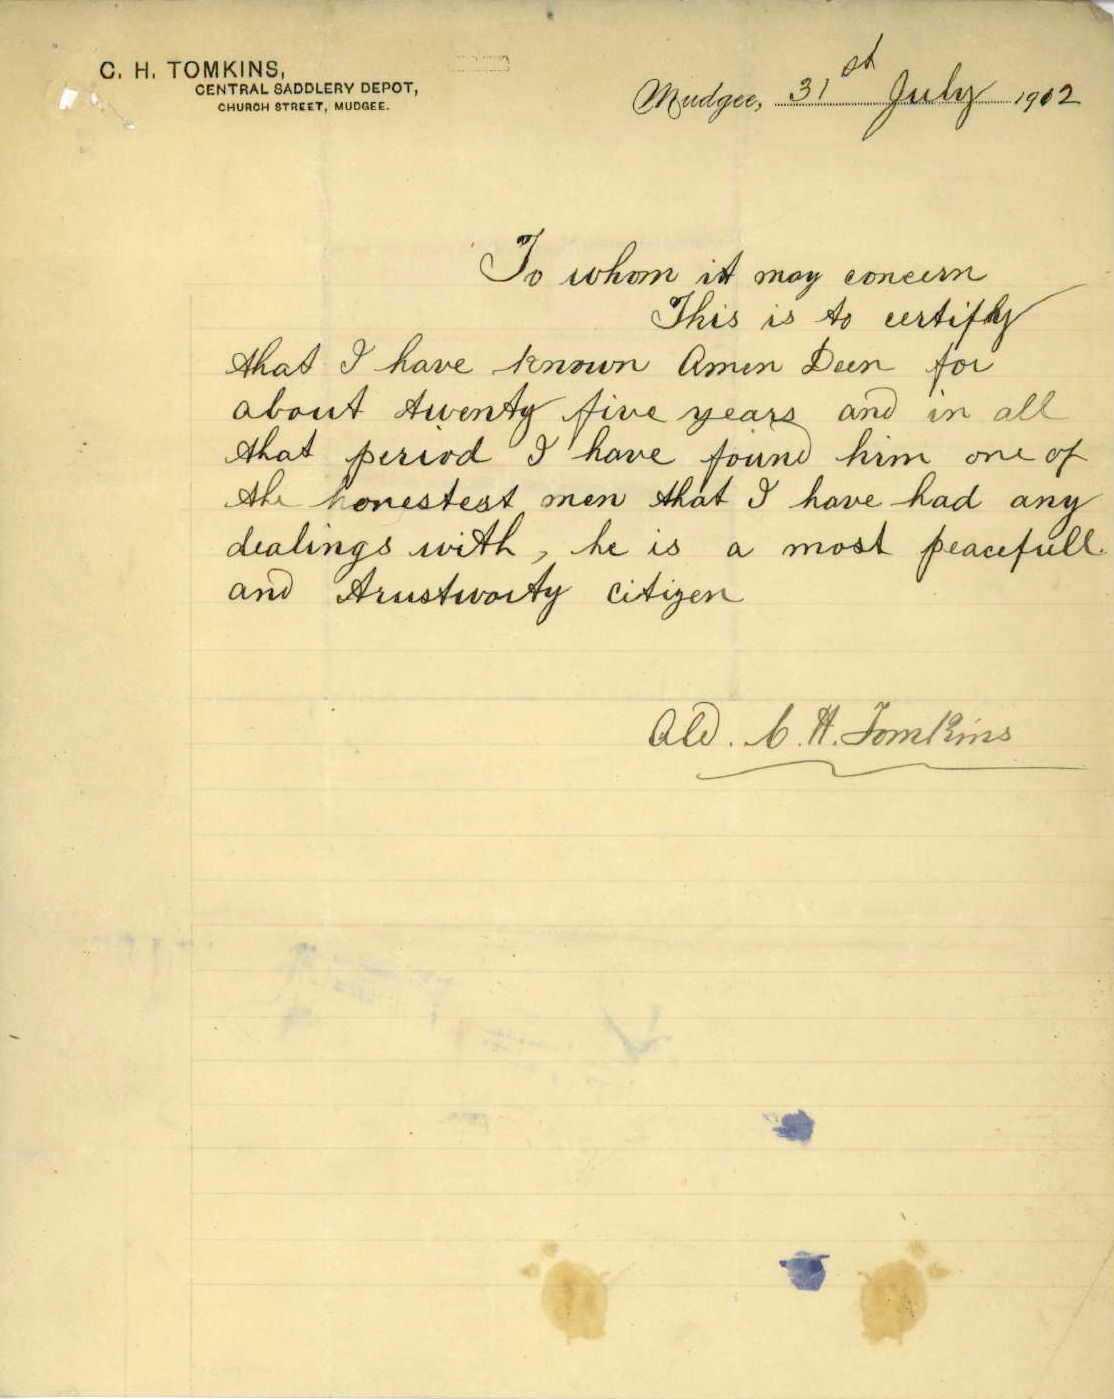 C. H. TOMKINS,
CENTRAL SADDLERY DEPOT,
CHURCH STREET, MUDGEE.
Mudgee, 31st July 1902
To whom it may concern
This is to certify
that I have known Amen Deen for
about twenty five years and in all
that period I have found him one of
the honestest men that I have had any
dealings with, he is a most peacefull
and trustworty citizen
Ald. C. H. Tomkins